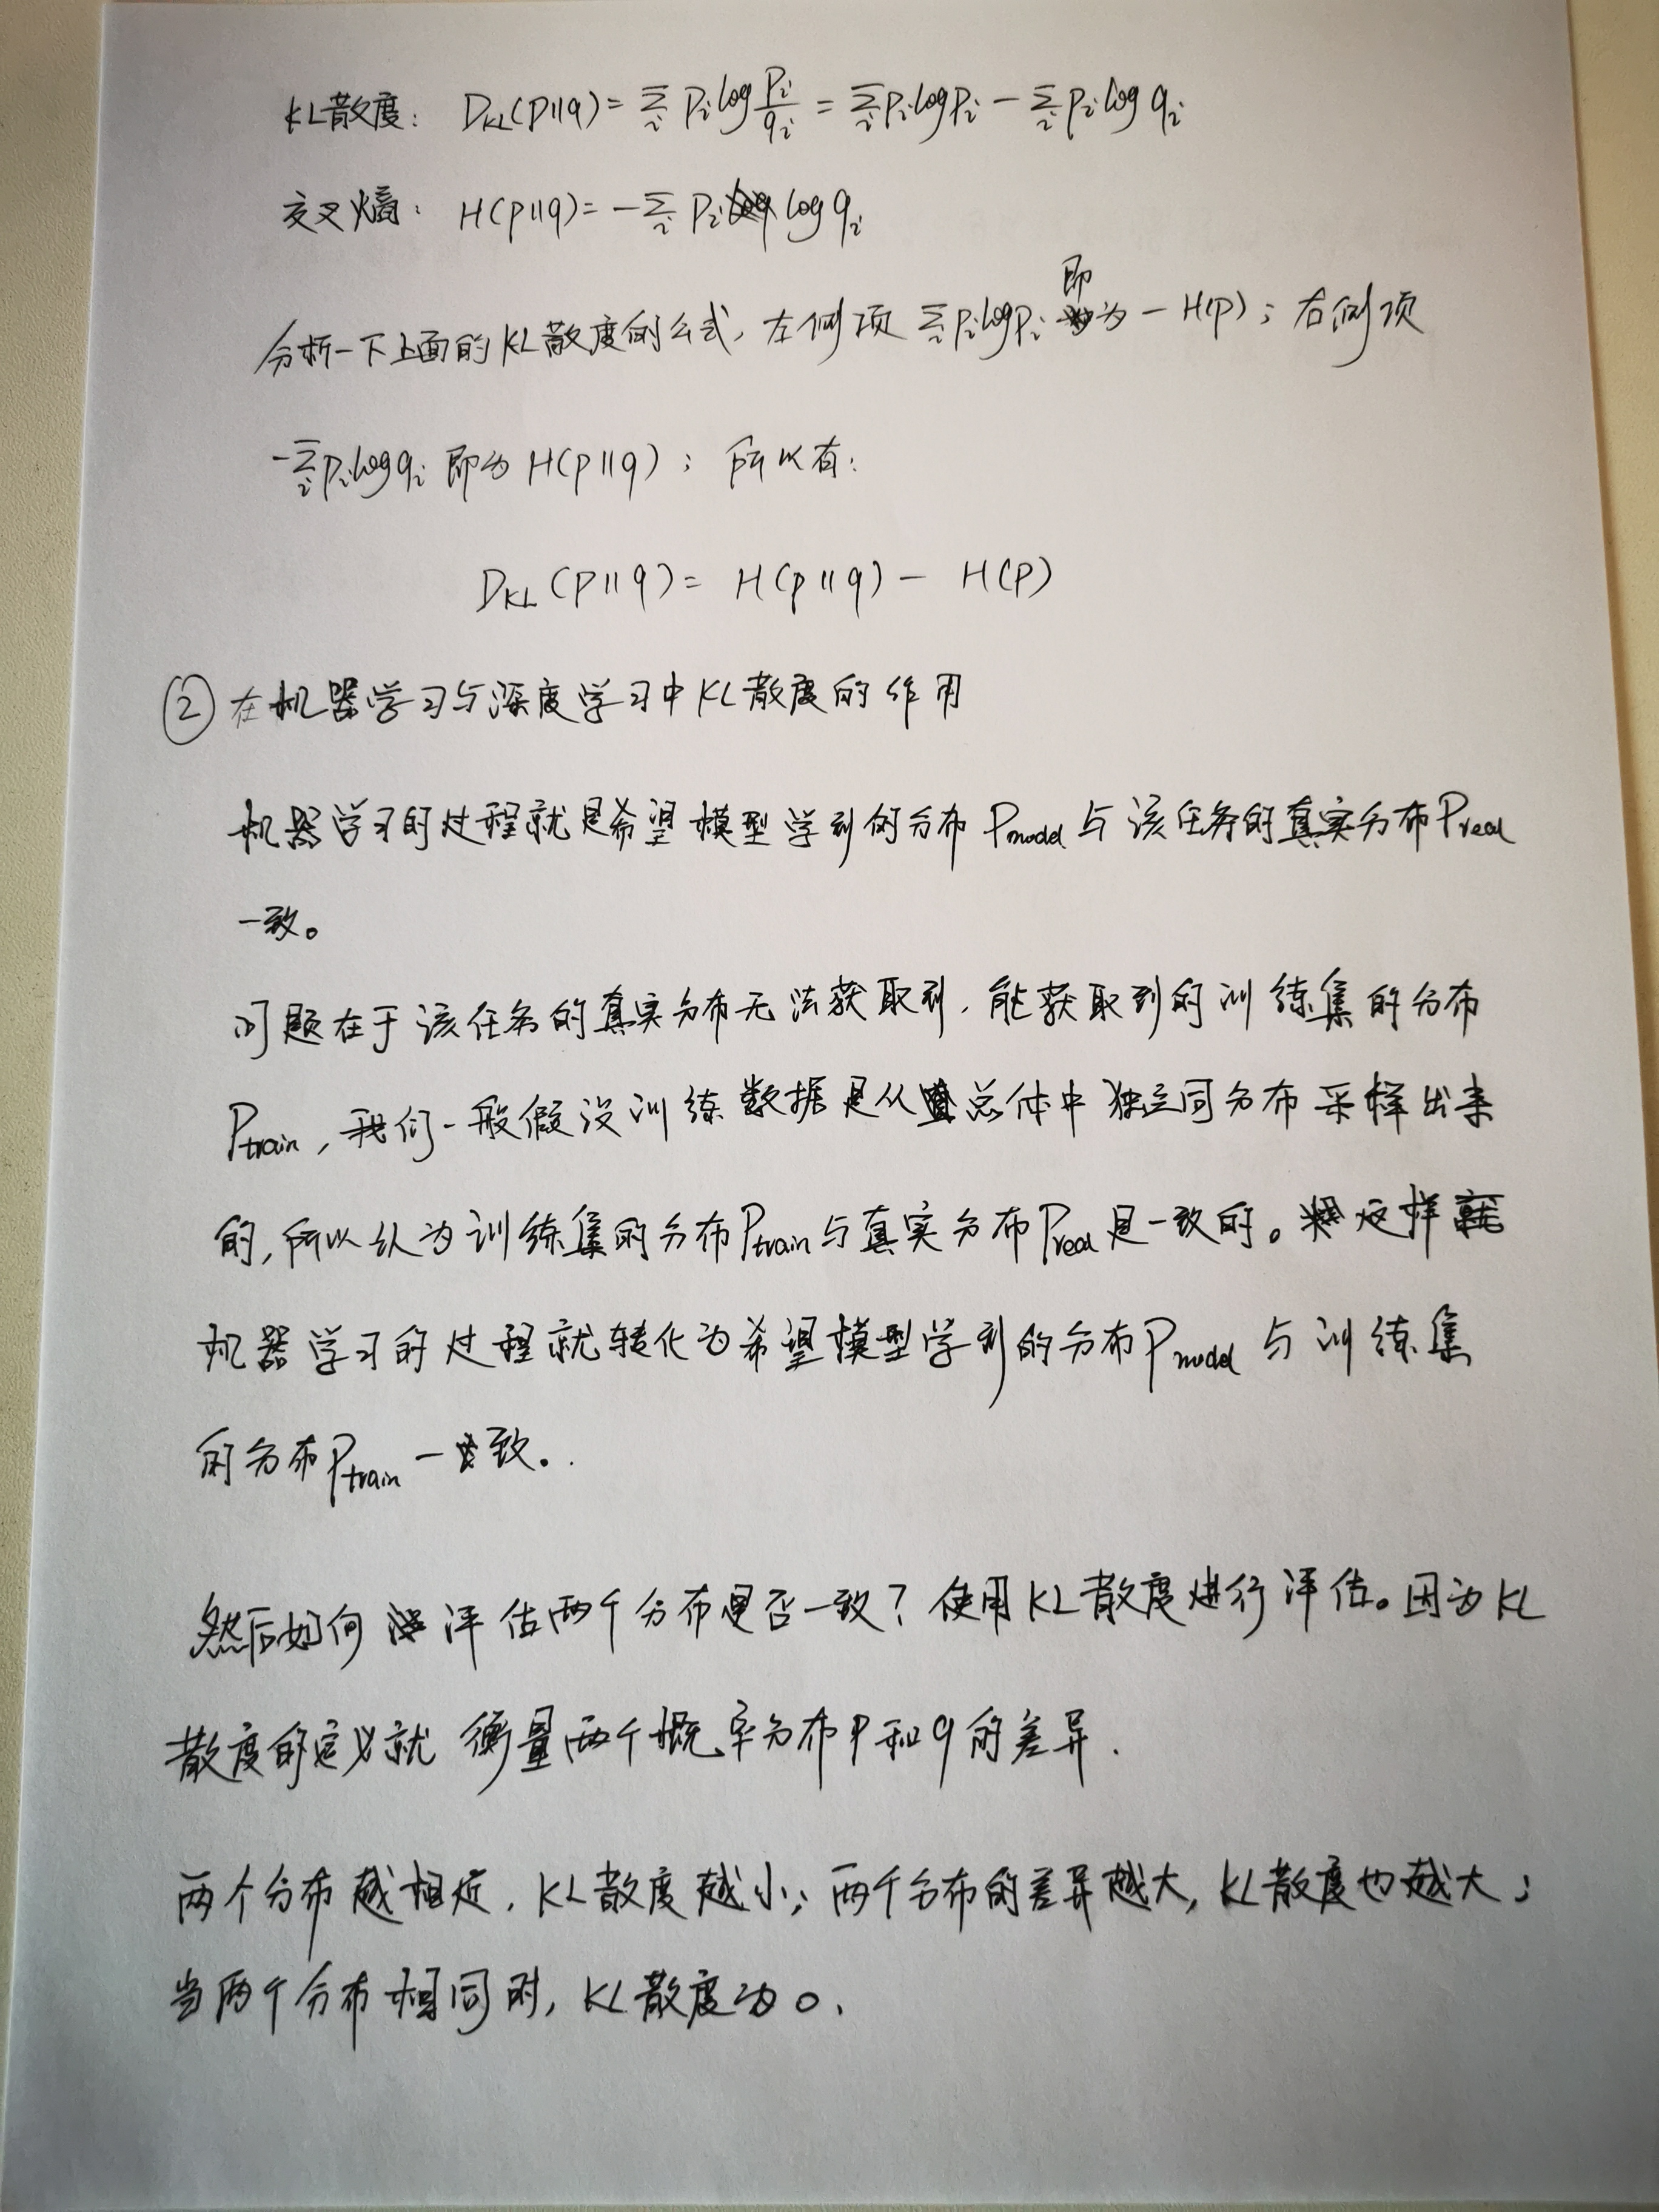 KL散度: D_KL(p||q)= Σ_i p_i log p_i/q_i = Σ_i p_i log p_i - Σ_i p_i log q_i
交叉熵: H(p||q)= -Σ_i p_i log q_i
分析一下上面的KL散度的公式, 左侧项 Σ_i p_i log p_i 即为 - H(p); 右侧项
-Σ_i p_i log q_i 即为 H(p||q); 所以有:
D_KL(p||q)= H(p||q) - H(p)
② 在机器学习与深度学习中KL散度的作用
机器学习的过程就是希望模型学到的分布P_model与该任务的真实分布P_real
一致。
问题在于该任务的真实分布无法获取到, 能获取到的训练集的分布
P_train, 我们一般假设训练数据是从总体中独立同分布采样出来
的, 所以认为训练集的分布P_train与真实分布P_real是一致的。这样
机器学习的过程就转化为希望模型学到的分布P_model与训练集
的分布P_train一致。
然后如何评估两个分布是否一致? 使用KL散度进行评估。因为KL
散度的定义就 衡量两个概率分布p和q的差异.
两个分布越相近, KL散度越小; 两个分布的差异越大, KL散度也越大;
当两个分布相同时, KL散度为0.